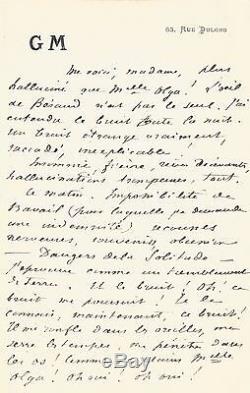 83, Rue Dulong
GM
Me voici, madame, plus
halluciné que Melle Olga! L'œil
de Béraud n'est pas le seul. J'ai
entendu le bruit toute la nuit.
Un bruit étrange vraiment,
saccadé, inexplicable!
Insomnie, fièvre, rêves délirants,
hallucinations trompeuses, tout.
Le matin. Impossibilité de
travail (pour laquelle je demande
une indemnité) secousses
nerveuses, souvenirs obscènes
— Dangers de la Solitude —
j'éprouve comme un tremblement
de terre. Et le bruit! Oh! ce
bruit me poursuit! Je le
connais, maintenant, ce bruit!
Il me ronfle dans les oreilles, me
serre les tempes, me pénètre dans
les os! Comme Melle
Olga! Oh oui! oh oui!
withQU